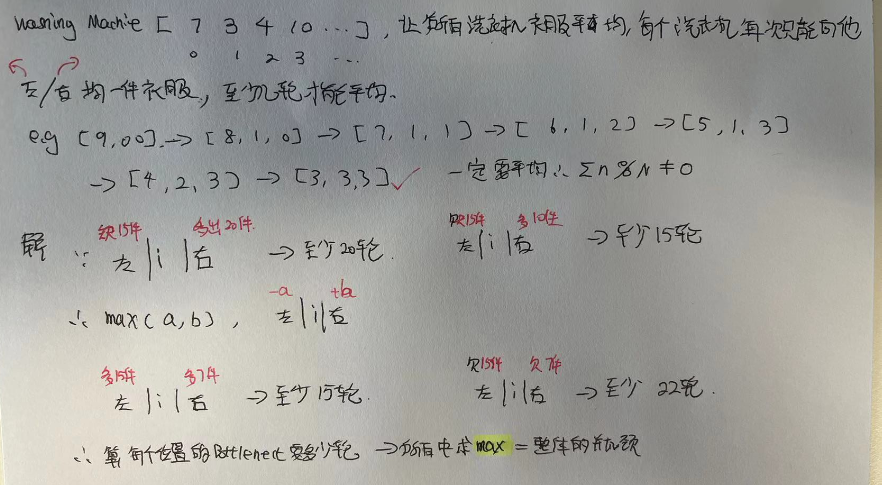 Washing Machie [ 7 3 4 10 ... ], 让所有洗衣机衣服平均, 每个洗衣机每次只能向他
0 1 2 3 ...
左/右均一件衣服, 至少几轮才能平均.
e.g [9,00] → [8,1,0] → [7,1,1] → [6,1,2] → [5,1,3]
→ [4,2,3] → [3,3,3] ✓ 一定需平均 ∴ Σn % N ≠ 0
缺15件 多出20件 欠15件 多10件
解 ∵ 左 | i | 右 → 至少20轮. 左 | i | 右 → 至少15轮
-a +b
∴ max(a,b), 左 | i | 右
多15件 多7件 欠15件 欠7件
左 | i | 右 → 至少15轮. 左 | i | 右 → 至少 22轮.
∴ 算每个位置的Bottlenect要多少轮 → 所有中求 max = 整体的瓶颈